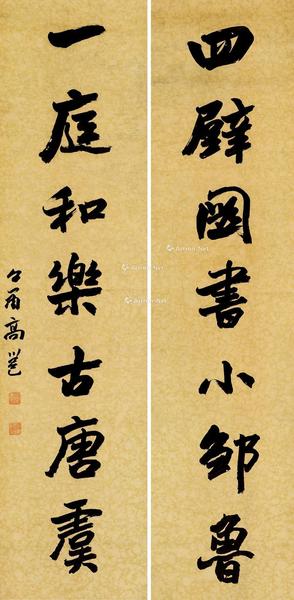 四壁圖書小鄒魯
一庭和樂古唐虞
高邕
Artron.Net
Artron.Net
Artron.Net